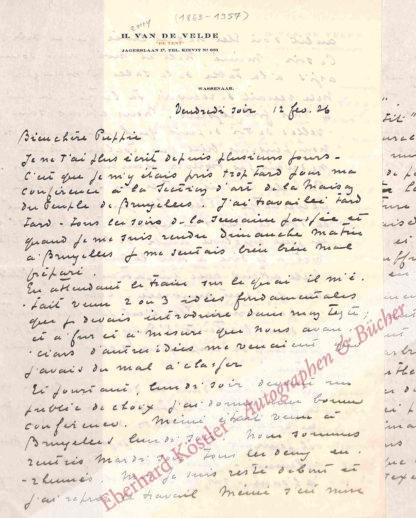 (1863-1957)
H. VAN DE VELDE
"DE TENT"
JAGERSLAAN 1ᴬ, TEL. KIEVIT Nº 601
WASSENAAR.
Vendredi soir 12 fev. 26
Bien chère Puppie
Je ne t'ai plus écrit depuis plusieurs jours -
C'est que je m'y étais pris trop tard pour ma
conférence à la Section d'art de la Maison
du Peuple de Bruxelles. J'ai travaillé tard
tard - tous les soirs de la semaine passée et
quand je me suis rendu Dimanche matin
à Bruxelles je me sentais bien bien mal
préparé.
En attendant le train sur le quai il m'é-
tait venu 2 ou 3 idées fondamentales
que je devais introduire dans mon texte;
et à fur et à mesure que nous avan-
cions d'autres idées me venaient que
j'avais du mal à classer
Et pourtant, lundi soir devant un
public de choix j'ai donné une bonne
conférence. Mème était venu à
Bruxelles lundi soir. Nous sommes
rentrés Mardi tous les deux en-
rhumés. je suis resté debout et
j'ai repris le travail Mème s'est mise
Eberhard Köstler Autographen & Bücher